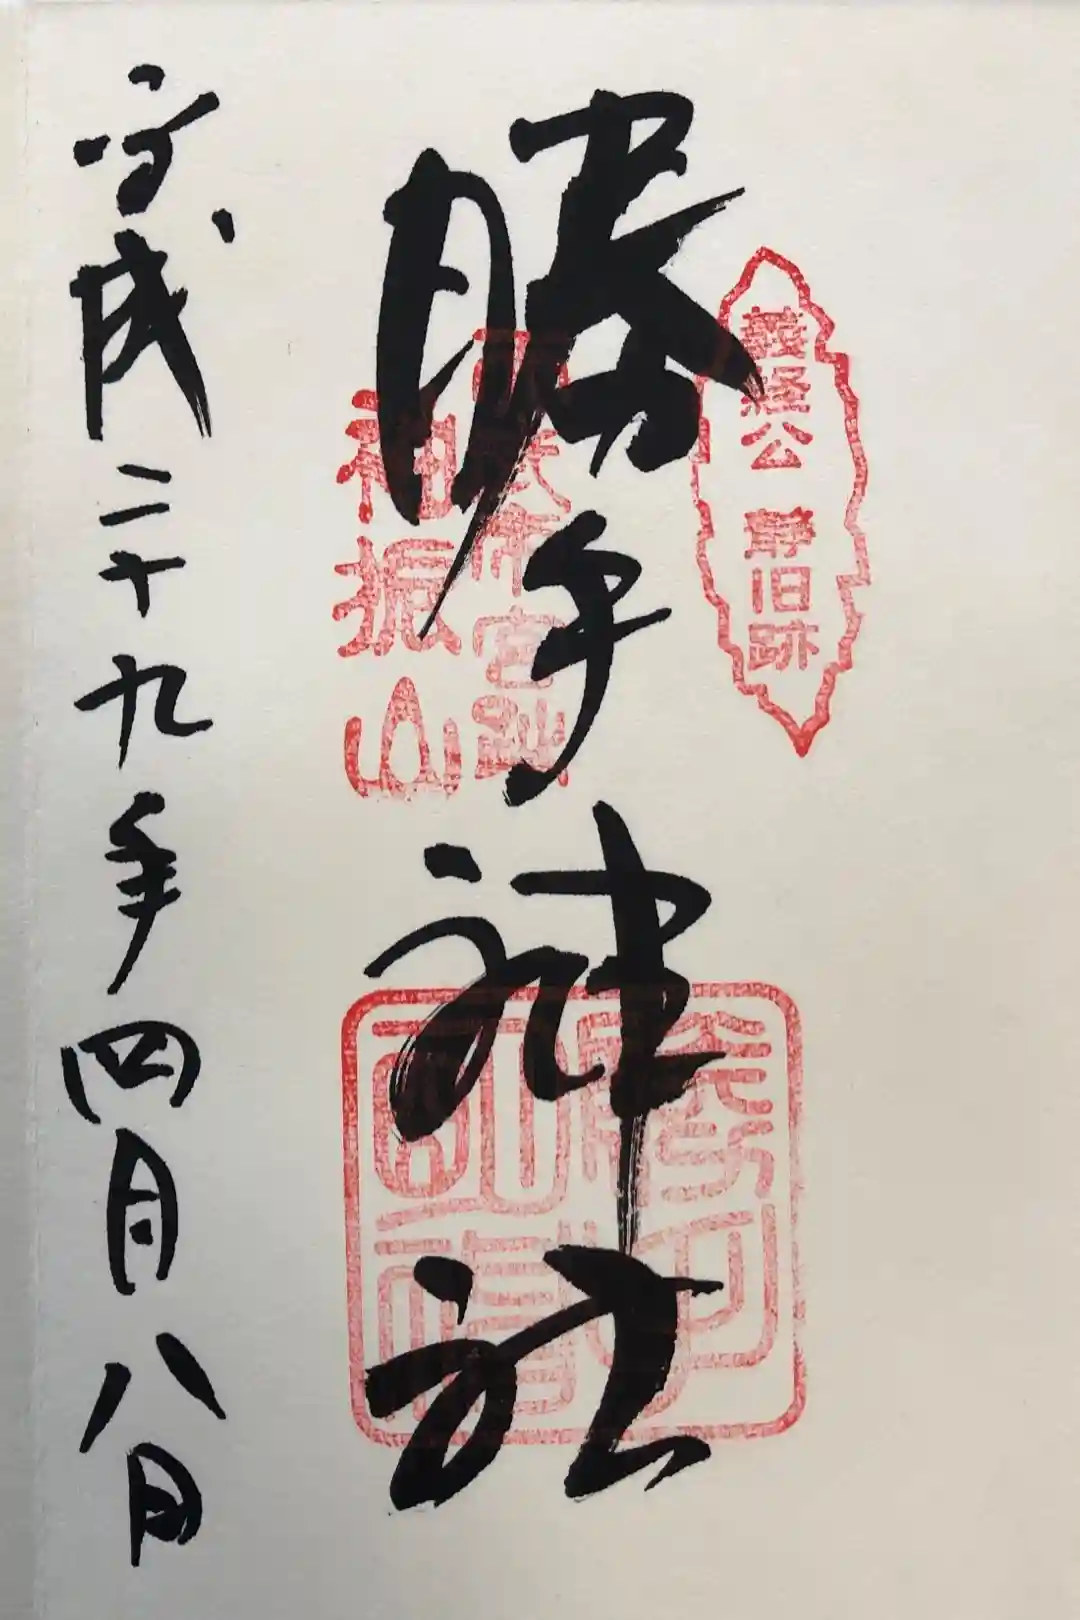 義経公 静旧跡
勝手神社
天武帝宮跡
袖振山
勝手神社印
平成二十九年四月八日